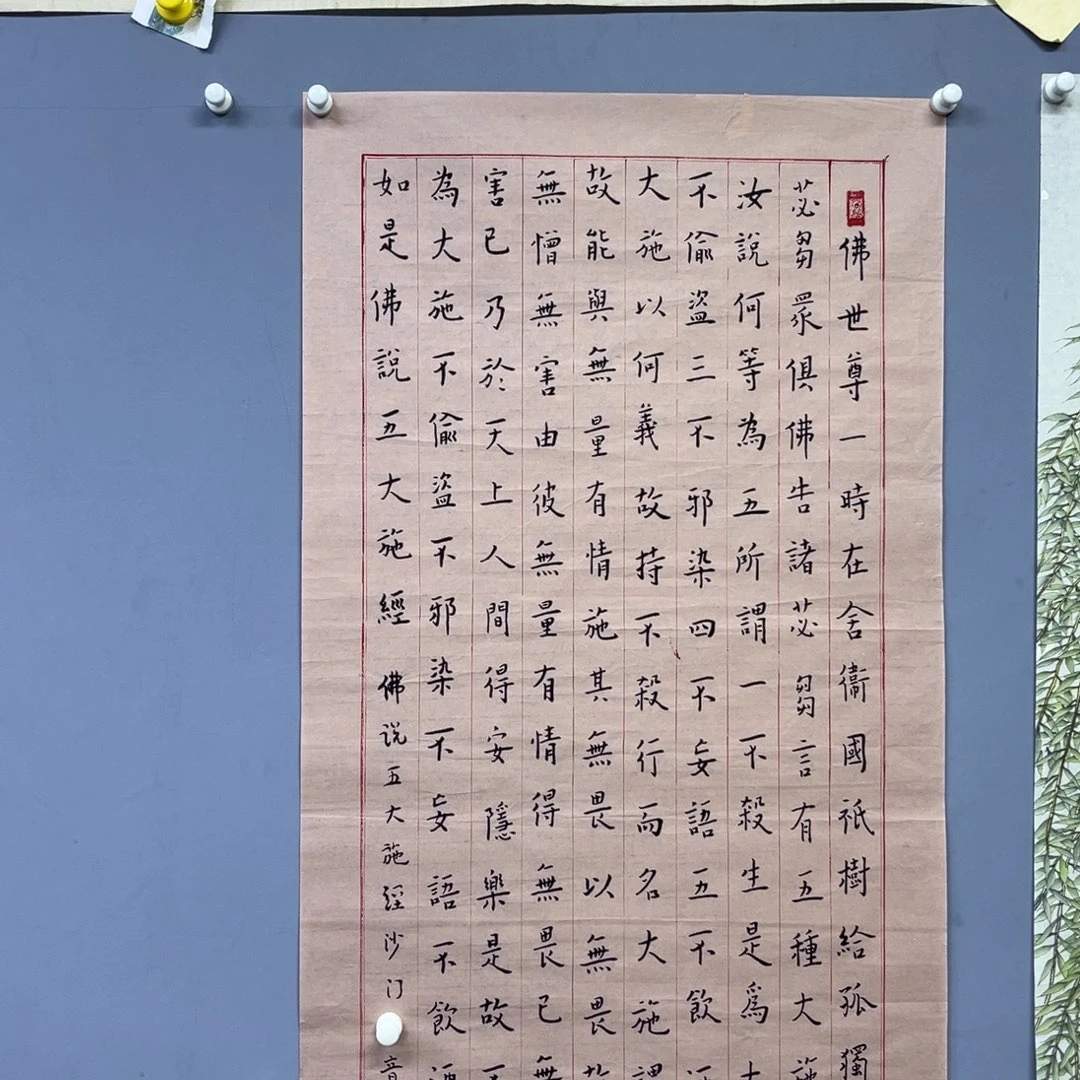 佛世尊一時在舍衛國祇樹給孤獨
苾芻眾俱佛告諸苾芻言有五種大施
汝說何等為五所謂一不殺生是爲大
不偷盜三不邪染四不妄語五不飲
大施以何義故持不殺行而名大施謂
故能與無量有情施其無畏以無畏故
無憎無害由彼無量有情得無畏已無
害已乃於天上人間得安隱樂是故
為大施不偷盜不邪染不妄語不飲酒
如是佛說五大施經 佛说五大施経沙门音